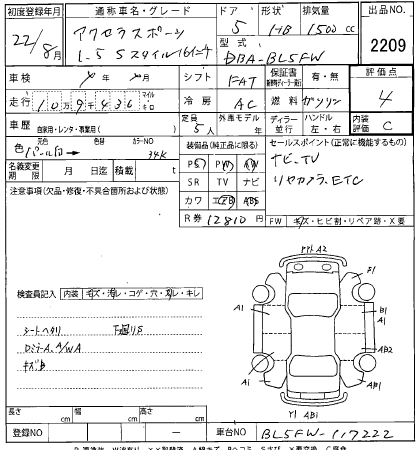 初度登録年月 通称車名・グレード ドア 形状 排気量 出品NO.
22/8月 アクセラスポーツ 5 HB 1500cc 2209
1.5 Sスタイル16インチ 型式 DBA-BL5FW
車検 シフト FAT 保証書 有・無 評価点
走行 10万9千436 マイル キロ 冷房 AC 燃料 ガソリン 4
車歴 自家用・レンタ・事業用( ) 定員 5人 外車モデル 年 ディーラー 並行 ハンドル 左・右 内装評価 C
色 パール白 色替 カラーNO 34K 装備品(純正品に限る) セールスポイント(正常に機能するもの)
PS PW AW ナビ、TV
名義変更期限 月 日迄 積載 t SR TV ナビ リヤカメラ、ETC
注意事項(欠品・修復・不具合箇所および状態) カワ エアB ABS
R券 12810円 FW キズ・ヒビ割・リペア跡・X要
検査員記入 内装 キズ・汚レ・コゲ・穴・スレ・キレ
シートヘタリ 下廻りS
DミラーA、A/WA
キズB
A2
F1
A1 B1
A1
AB2
A1 AB1
Y1 AB1
長さ cm 幅 cm 高さ cm
登録NO ー 車台NO BL5FW-117222